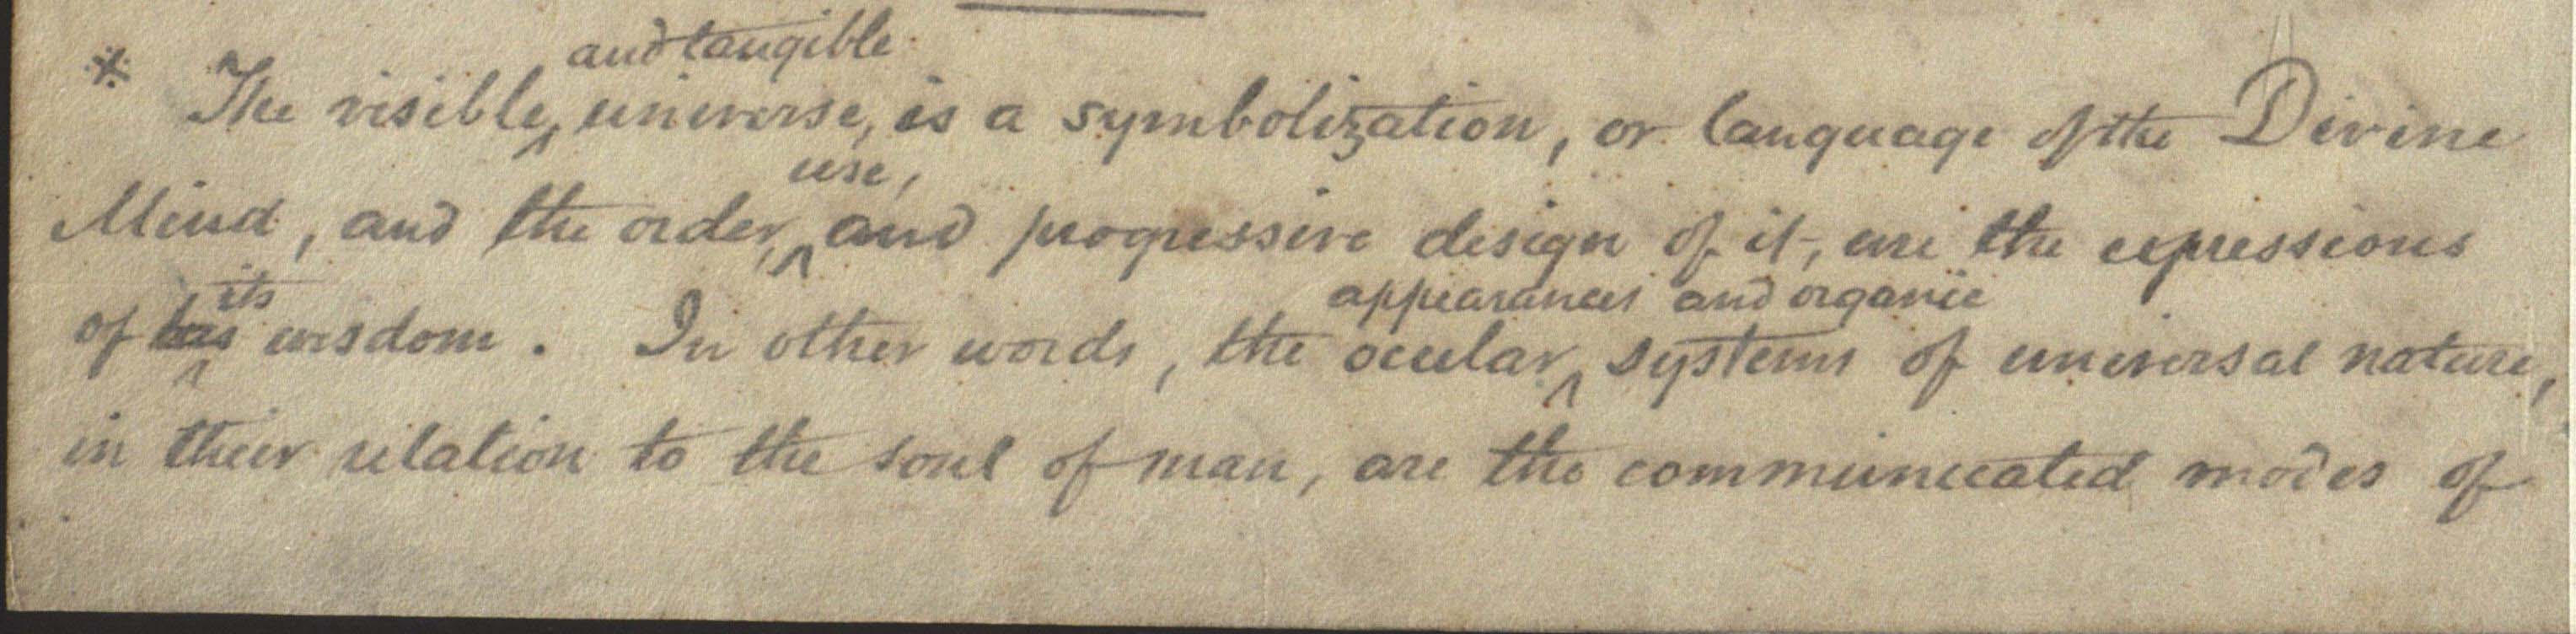 and tangible
* The visible, universe, is a symbolization, or language of the Divine
use,
Mind, and the order, and progressive design of it, are the expressions
its
appearances and organic
of his wisdom. In other words, the ocular systems of universal nature,
in their relation to the soul of man, are the communicated modes of